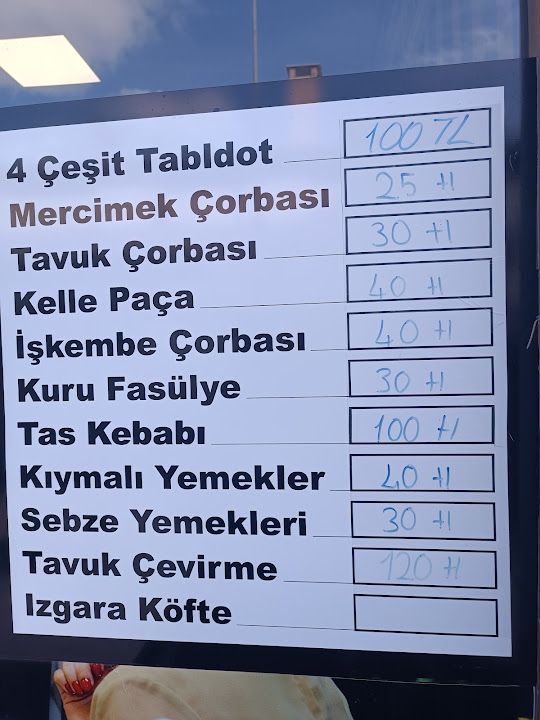 4 Çeşit Tabldot 100 TL
Mercimek Çorbası 25 tl
Tavuk Çorbası 30 tl
Kelle Paça 40 tl
İşkembe Çorbası 40 tl
Kuru Fasülye 30 tl
Tas Kebabı 100 tl
Kıymalı Yemekler 40 tl
Sebze Yemekleri 30 tl
Tavuk Çevirme 120 tl
Izgara Köfte